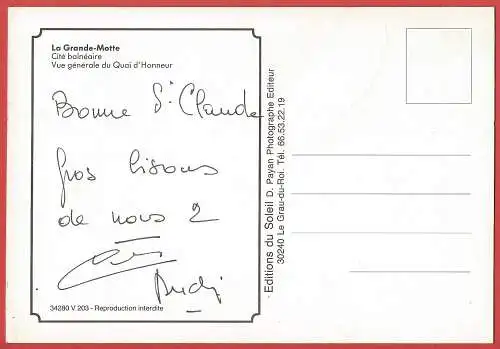 La Grande-Motte
Cité balnéaire
Vue générale du Quai d'Honneur
Bonne St Claude
Gros bisous
de nous 2
34280 V 203 - Reproduction interdite
Editions du Soleil D. Payan Photographe Editeur
30240 Le Grau-du-Roi. Tél. 66.53.22.19